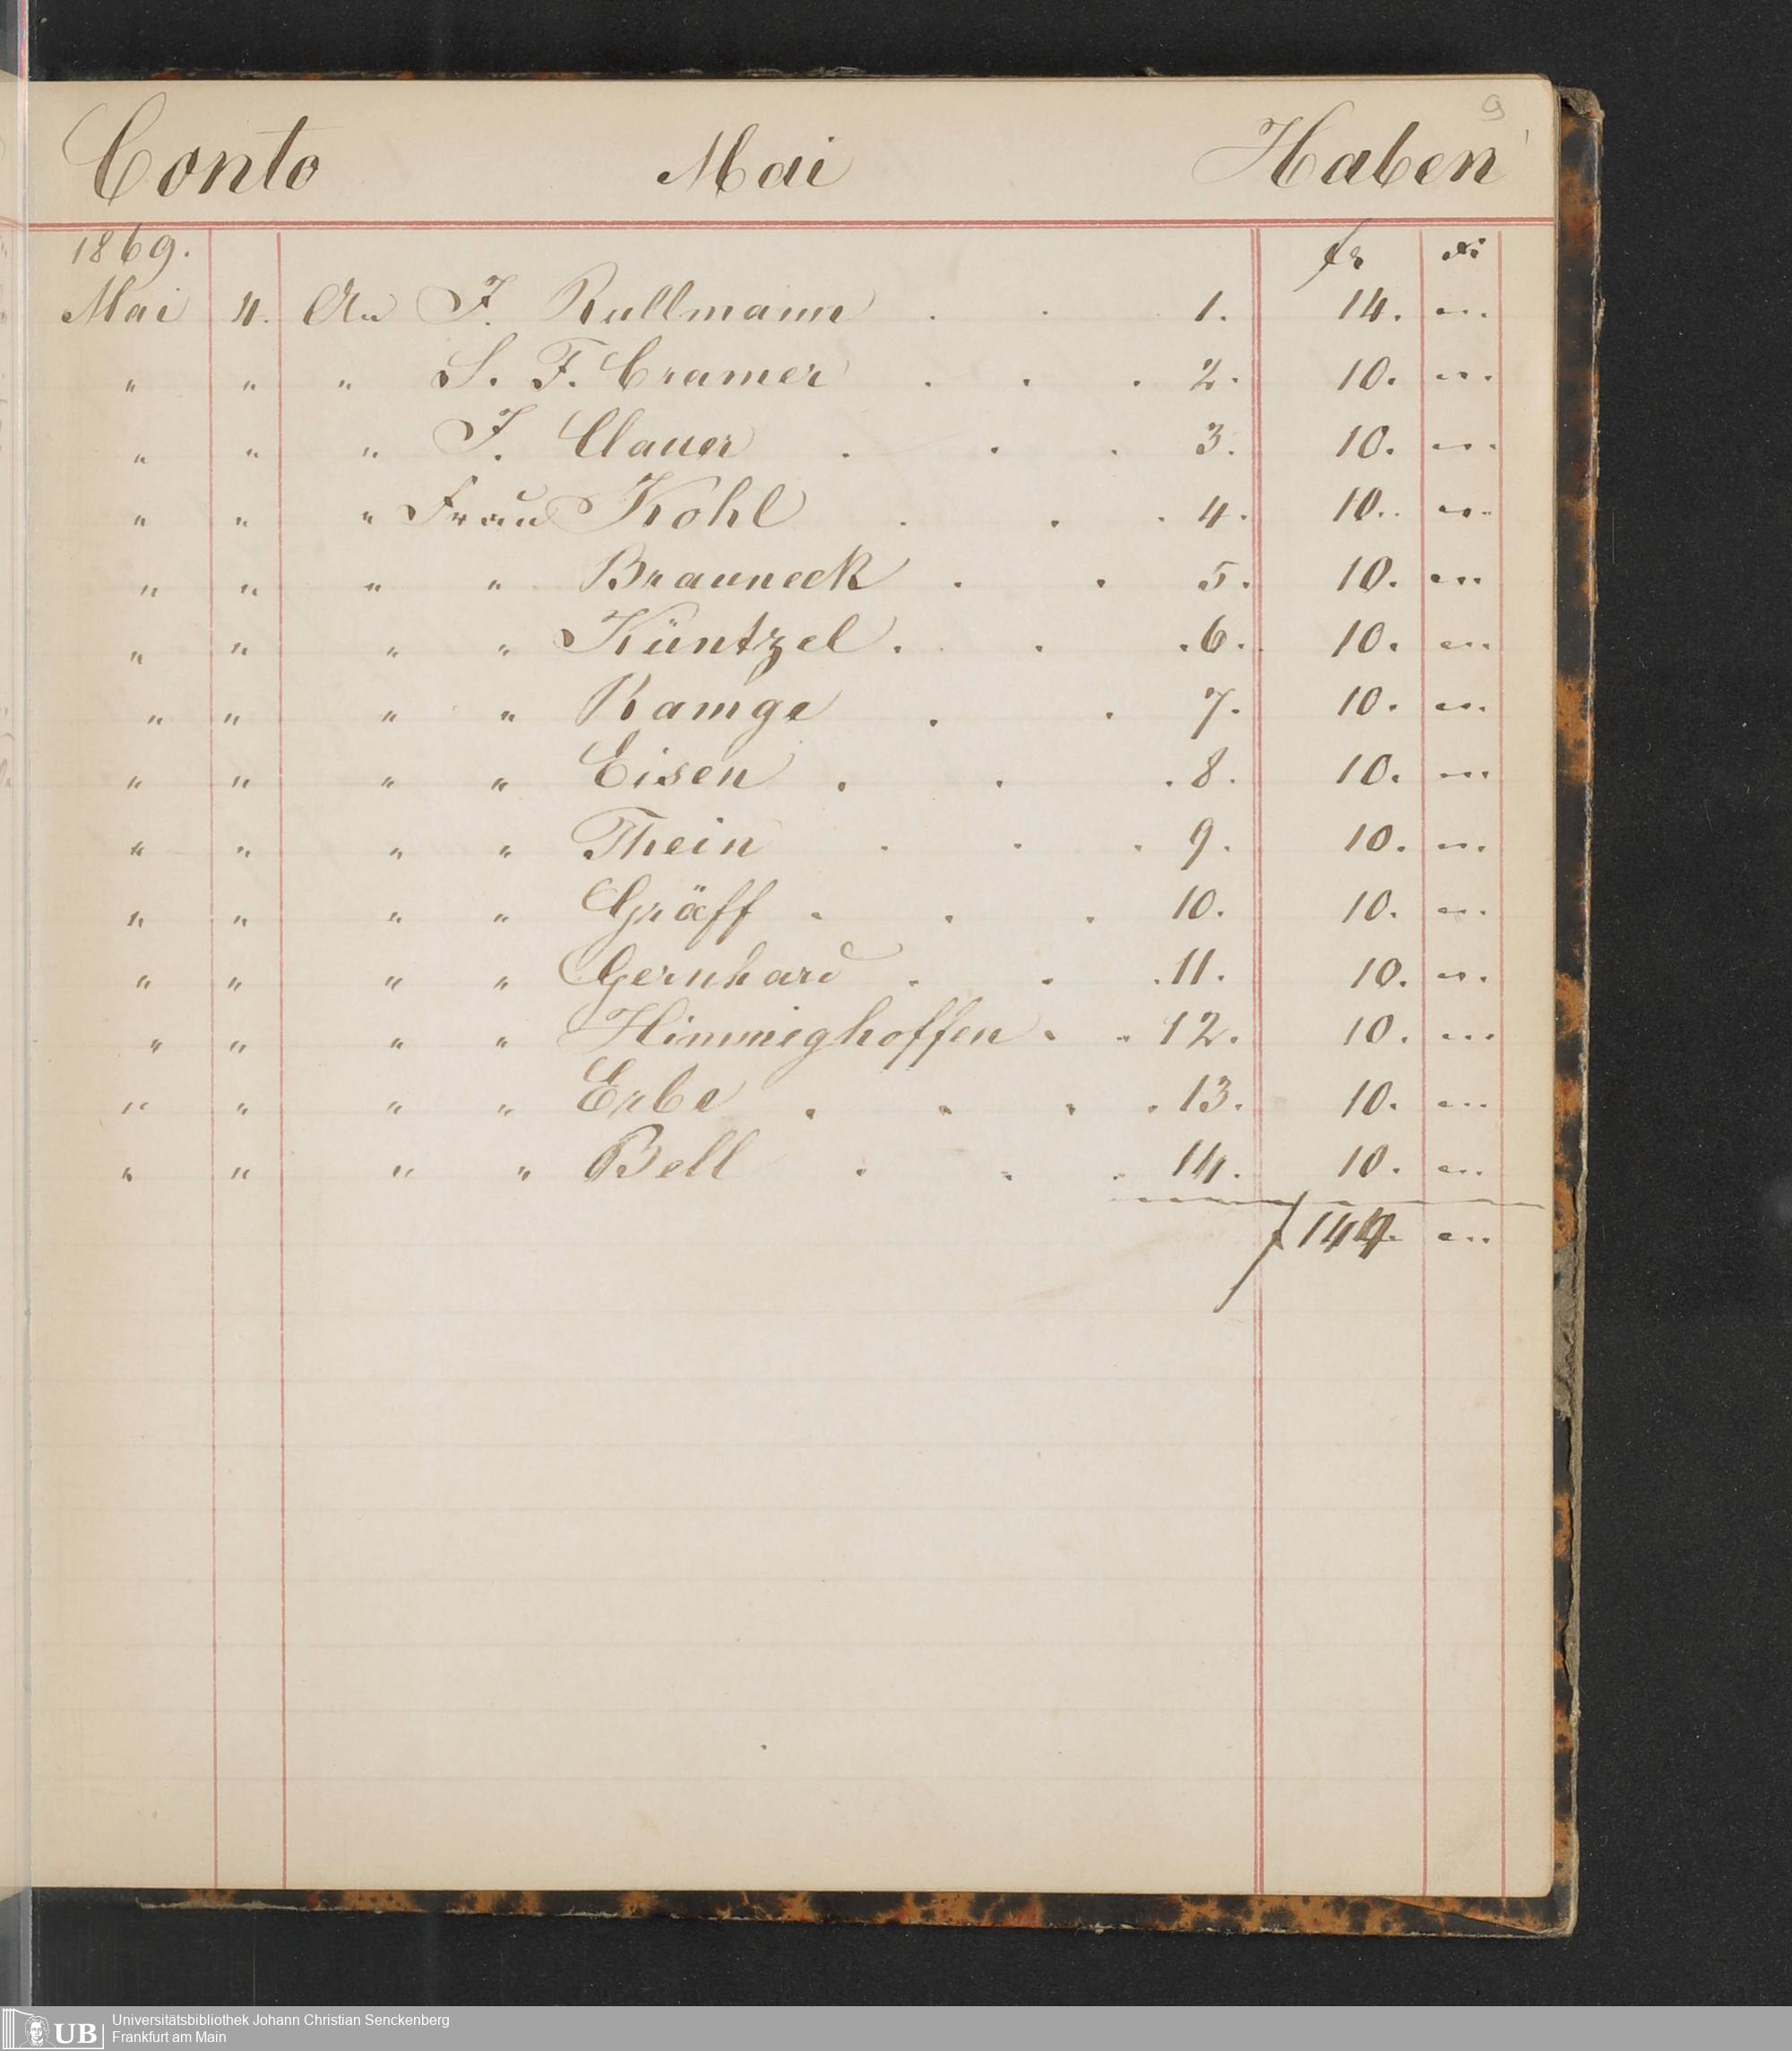 9
Conto Mai Haben
1869. fr xr
Mai 4. An J. Rullmann . . 1. 14. "
" " " S. F. Cramer . . . 2. 10. "
" " " J. Clauer . . . 3. 10. "
" " " Frau Kohl . . . 4. 10. "
" " " " Brauneck . . 5. 10. "
" " " " Küntzel . . . 6. 10. "
" " " " Ramge . . 7. 10. "
" " " " Eisen . . . 8. 10. "
" " " " Thein . . . 9. 10. "
" " " " Gräff . . . 10. 10. "
" " " " Gernhard . . . 11. 10. "
" " " " Himmighoffen . . 12. 10. "
" " " " Erbe . . . . 13. 10. "
" " " " Bell . . . 14. 10. "
f 144. "
UB Universitätsbibliothek Johann Christian Senckenberg
Frankfurt am Main